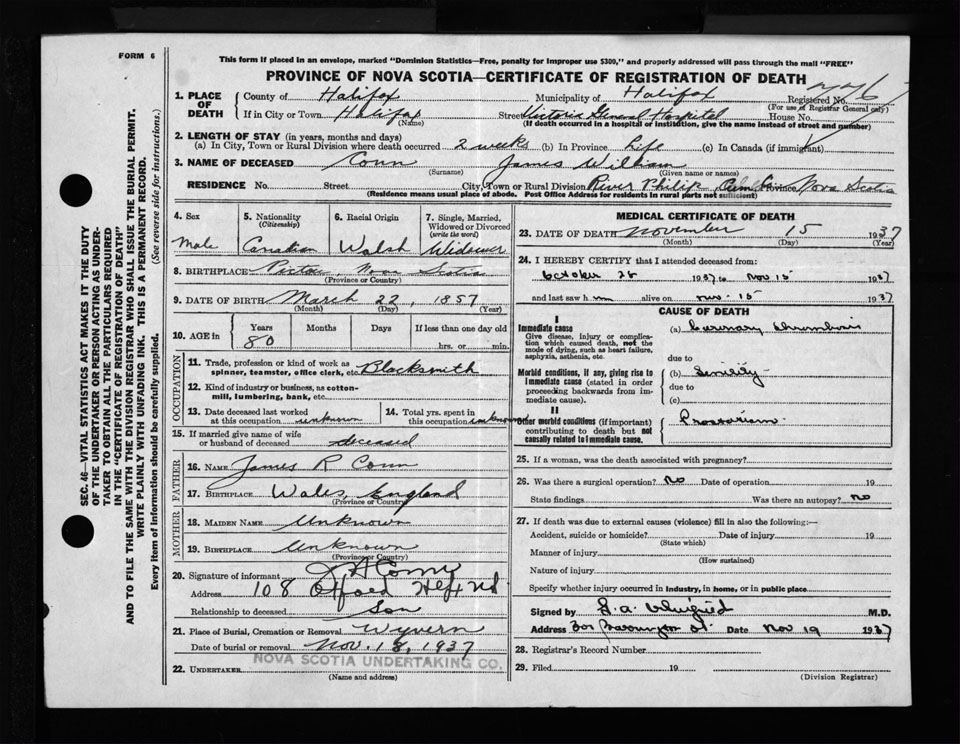 FORM 6
This form if placed in an envelope, marked "Dominion Statistics—Free, penalty for improper use $300," and properly addressed will pass through the mail "FREE"
PROVINCE OF NOVA SCOTIA—CERTIFICATE OF REGISTRATION OF DEATH
1. PLACE OF DEATH
County of Halifax Municipality of Halifax Registered No.
(For use of Registrar General only)
If in City or Town Halifax Street Victoria General Hospital House No.
(Name) (If death occurred in a hospital or institution, give the name instead of street and number)
2. LENGTH OF STAY (in years, months and days)
(a) In City, Town or Rural Division where death occurred 2 weeks (b) In Province Life (c) In Canada (if immigrant)
3. NAME OF DECEASED Conn James William
(Surname) (Given name or names)
RESIDENCE No. Street City, Town or Rural Division River Philip, Province Nova Scotia
(Residence means usual place of abode. Post Office Address for residents in rural parts not sufficient)
4. Sex Male
5. Nationality (Citizenship) Canadian
6. Racial Origin Walsh
7. Single, Married, Widowed or Divorced (write the word) Widower
8. BIRTHPLACE Pictou, Nova Scotia
(Province or Country)
9. DATE OF BIRTH March 22, 1857
(Month) (Day) (Year)
10. AGE in Years Months Days If less than one day old
80 hrs. or min.
OCCUPATION
11. Trade, profession or kind of work as spinner, teamster, office clerk, etc. Blacksmith
12. Kind of industry or business, as cotton-mill, lumbering, bank, etc.
13. Date deceased last worked at this occupation unknown
14. Total yrs. spent in this occupation unknown
15. If married give name of wife or husband of deceased deceased
FATHER
16. NAME James R Conn
17. BIRTHPLACE Wales, England
(Province or Country)
MOTHER
18. MAIDEN NAME Unknown
19. BIRTHPLACE Unknown
(Province or Country)
20. Signature of informant
Address 108
Relationship to deceased Son
21. Place of Burial, Cremation or Removal Wyvern
Date of burial or removal Nov. 18, 1937
22. UNDERTAKER NOVA SCOTIA UNDERTAKING CO.
(Name and address)
MEDICAL CERTIFICATE OF DEATH
23. DATE OF DEATH November 15 1937
(Month) (Day) (Year)
24. I HEREBY CERTIFY that I attended deceased from:
October 28 1937 to Nov 15 1937
and last saw him alive on Nov. 15 1937
CAUSE OF DEATH
I
Immediate cause
Give disease, injury or complication which caused death, not the mode of dying, such as heart failure, asphyxia, asthenia, etc.
(a)
due to
Morbid conditions, if any, giving rise to immediate cause (stated in order proceeding backwards from immediate cause).
(b) Senility
due to
(c)
II
Other morbid conditions (if important) contributing to death but not causally related to immediate cause.
25. If a woman, was the death associated with pregnancy?
26. Was there a surgical operation? No Date of operation 19
State findings Was there an autopsy? No
27. If death was due to external causes (violence) fill in also the following:—
Accident, suicide or homicide? Date of injury 19
(State which)
Manner of injury
(How sustained)
Nature of injury
Specify whether injury occurred in industry, in home, or in public place
Signed by M.D.
Address Date Nov 19 1937
28. Registrar's Record Number
29. Filed 19
(Division Registrar)
SEC. 46—VITAL STATISTICS ACT MAKES IT THE DUTY
OF THE UNDERTAKER OR PERSON ACTING AS UNDER-
TAKER TO OBTAIN ALL THE PARTICULARS REQUIRED
IN THE "CERTIFICATE OF REGISTRATION OF DEATH"
AND TO FILE THE SAME WITH THE DIVISION REGISTRAR WHO SHALL ISSUE THE BURIAL PERMIT.
WRITE PLAINLY WITH UNFADING INK. THIS IS A PERMANENT RECORD.
Every item of information should be carefully supplied. (See reverse side for instructions.)